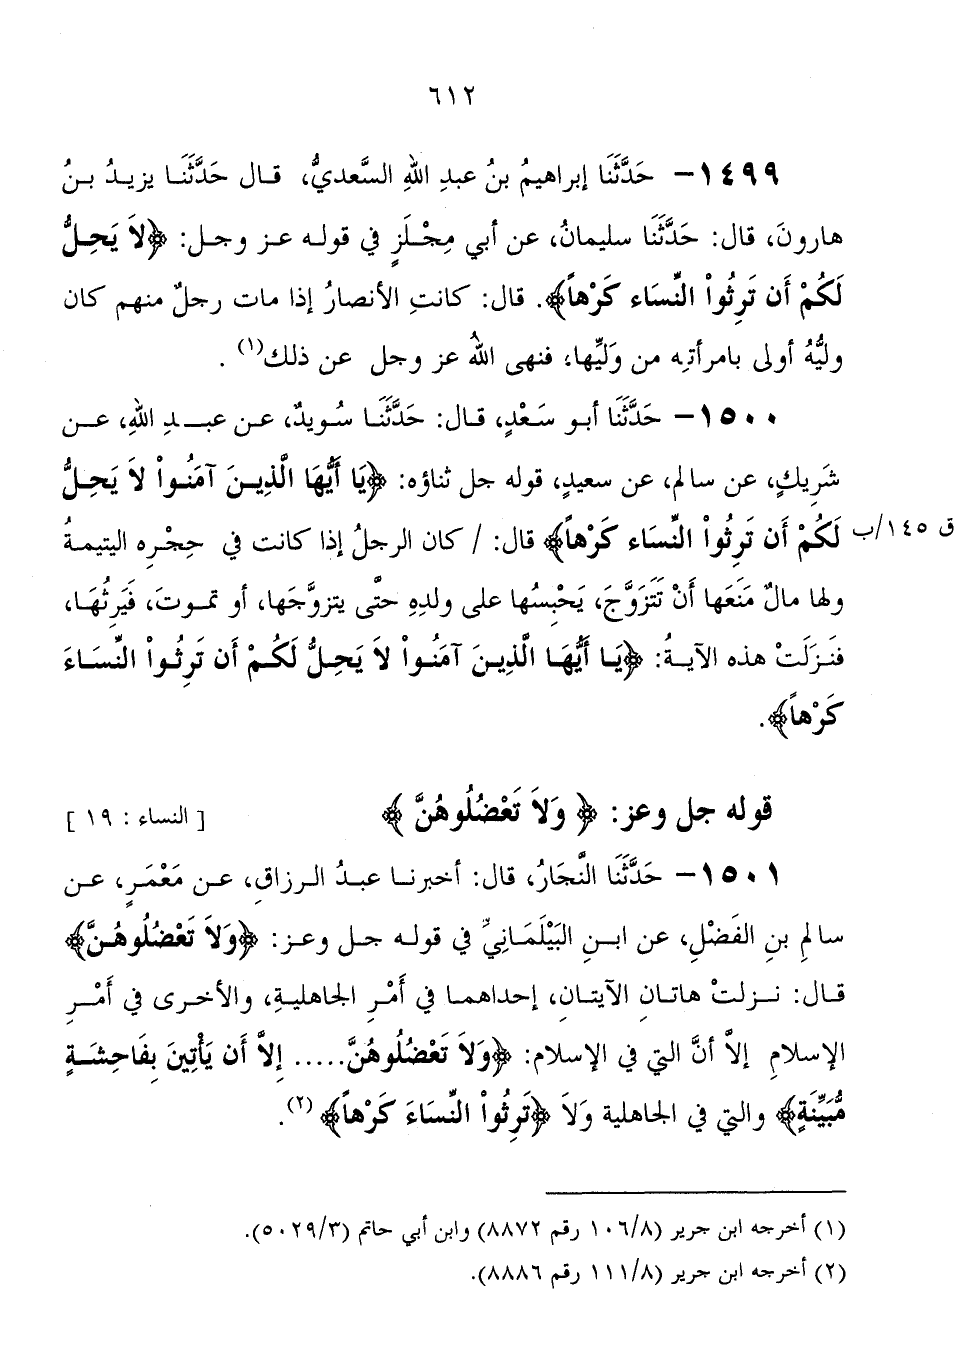 ٦١٢
١٤٩٩- حَدَّثَنَا إبراهيمُ بنُ عبدِ اللهِ السَّعديُّ، قال حَدَّثَنَا يزيدُ بنُ
هارونَ، قال: حَدَّثَنَا سليمانُ، عن أبي مِجْلَزٍ في قوله عز وجل: ﴿لاَ يَحِلُّ
لَكُمْ أَن تَرِثُواْ النِّسَاء كَرْهاً﴾. قال: كانتِ الأنصارُ إذا مات رجلٌ منهم كان
وليُّهُ أولى بامرأتِه من وَليِّها، فنهى اللهُ عز وجل عن ذلك(١) .
١٥٠٠- حَدَّثَنَا أبو سَعْدٍ، قال: حَدَّثَنَا سُويدٌ، عن عبدِ اللهِ، عن
شَرِيكٍ، عن سالم، عن سعيدٍ، قوله جل ثناؤه: ﴿يَا أَيُّهَا الَّذِينَ آمَنُواْ لاَ يَحِلُّ
لَكُمْ أَن تَرِثُواْ النِّسَاء كَرْهاً﴾ قال: / كان الرجلُ إذا كانت في حِجْرِه اليتيمةُ
ق ١٤٥/ب
ولها مالٌ مَنَعَها أَنْ تَتَزَوَّجَ، يَحْبِسُها على ولدِهِ حتَّى يتزوَّجَها، أو تموتَ، فَيَرِثُهَا،
فَنَزَلَتْ هذه الآيةُ: ﴿يَا أَيُّهَا الَّذِينَ آمَنُواْ لاَ يَحِلُّ لَكُمْ أَن تَرِثُواْ النِّسَاءَ
كَرْهاً﴾.
قوله جل وعز: ﴿ وَلاَ تَعْضُلُوهُنَّ ﴾ [ النساء : ١٩ ]
١٥٠١- حَدَّثَنَا النَّجَارُ، قال: أخبرنا عبدُ الرزاقِ، عن مَعْمَرٍ، عن
سالمِ بنِ الفَضْلِ، عن ابنِ البَيْلَمَانِيِّ في قوله جل وعز: ﴿وَلاَ تَعْضُلُوهُنَّ﴾
قال: نزلتْ هاتانِ الآيتانِ، إحداهما في أَمْرِ الجاهليةِ، والأخرى في أَمْرِ
الإسلامِ إلاَّ أنَّ التي في الإسلام: ﴿وَلاَ تَعْضُلُوهُنَّ..... إِلاَّ أَن يَأْتِينَ بِفَاحِشَةٍ
مُّبَيِّنَةٍ﴾ والتي في الجاهلية وَلاَ ﴿تَرِثُواْ النِّسَاءَ كَرْهاً﴾(٢).
(١) أخرجه ابن جرير (١٠٦/٨ رقم ٨٨٧٢) وابن أبي حاتم (٥٠٢٩/٣).
(٢) أخرجه ابن جرير (١١١/٨ رقم ٨٨٨٦).